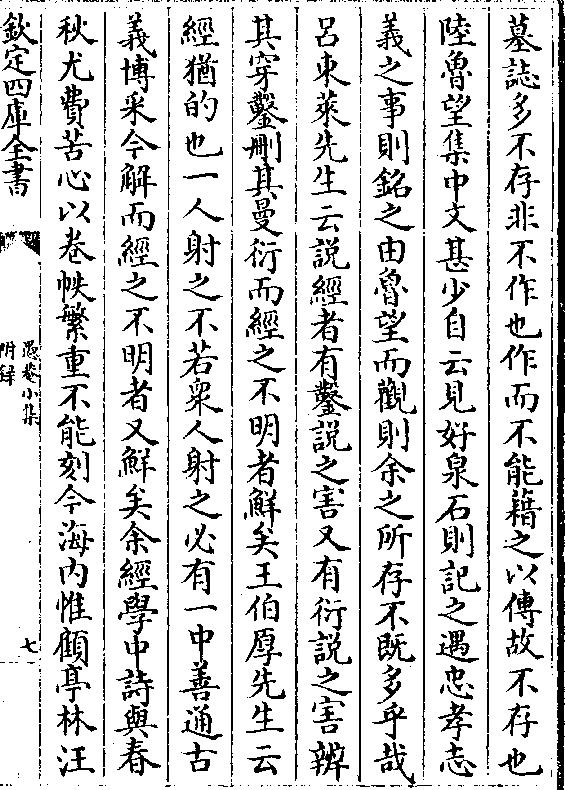 墓誌多不存非不作也作而不能藉之以傳故不存也
陸魯望集中文甚少自云見好泉石則記之遇忠孝志
義之事則銘之由魯望而觀則余之所存不既多乎哉
呂東萊先生云説經者有鑿説之害又有衍説之害辨
其穿鑿刪其曼衍而經之不明者鮮矣王伯厚先生云
經猶的也一人射之不若衆人射之必有一中善通古
義博采今解而經之不明者又鮮矣余經學中詩與春
秋尤費苦心以卷帙繁重不能刻今海内惟顧亭林汪
欽定四庫全書
愚菴小集
附録
七